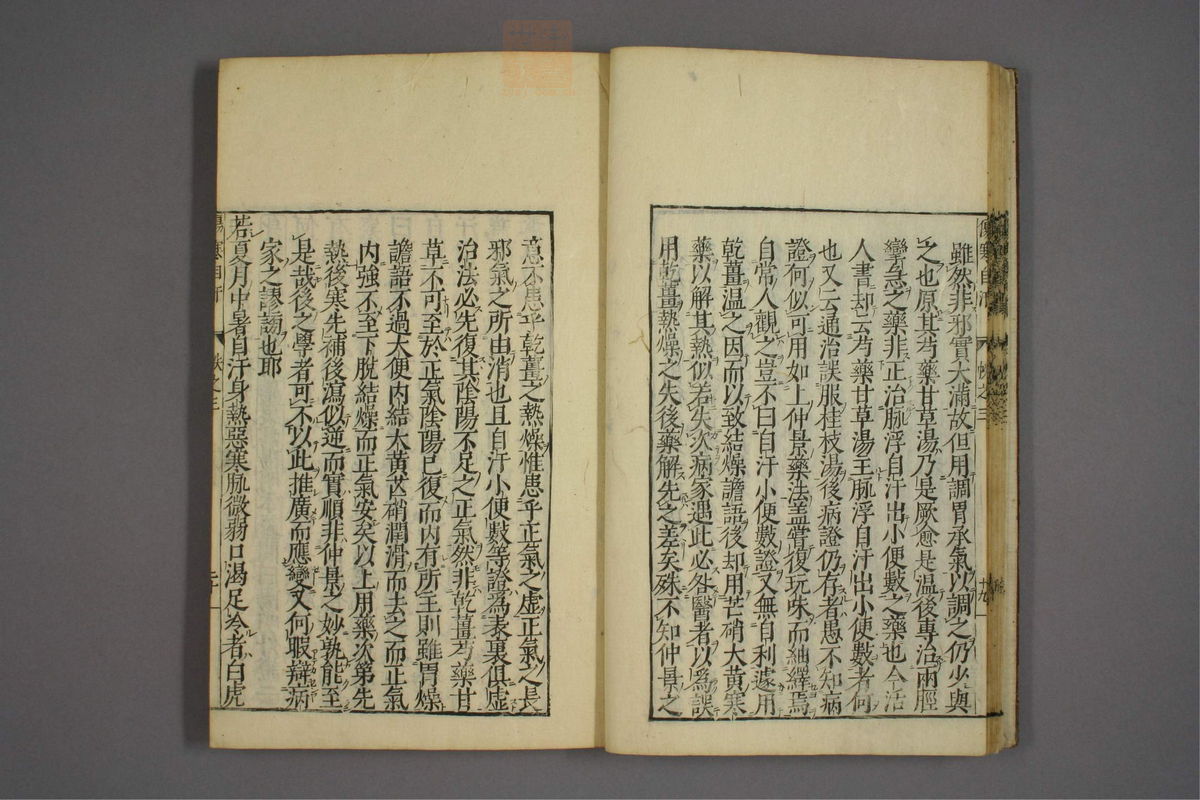 雖然非邪實大滿故但用調胃承氣以調之仍少與
之也原其芍藥甘草湯乃是厥愈足溫後專治兩脛
攣急之藥非正治脉浮自汗出小便數之藥也今活
人書却云芍藥甘草湯主脉浮自汗出小便數者何
也又云通治誤服桂枝湯後病證仍存者愚不知病
證何似可用如上仲景藥法盖嘗復玩味而紬繹焉
自常人觀之豈不曰自汗小便數證又無自利遽用
乾薑溫之因而以致結燥譫語後却用芒硝大黃寒
藥以解其熱似若失次病家遇此必咎醫者以爲誤
用乾薑熱燥之失後藥解先之差矣殊不知仲景之
意不患乎乾薑之熱燥惟患乎正氣之虛正氣之長
邪氣之所由消也且自汗小便數等證爲表裏俱虛
治法必先復其陰陽不足之正氣然非乾薑芍藥甘
草不可至於正氣陰陽已復而内有所主則雖胃燥
譫語不過大便内結大黃芒硝潤滑而去之而正氣
内強不至下脫結燥而正氣安矣以上用藥次第先
熱後寒先補後瀉似逆而實順非仲景之妙孰能至
是哉後之學者可不以此推廣而應變又何暇辯病
家之謬謗也耶
若夏月中暑自汗身熱惡寒脉微弱口渴足冷者白虎